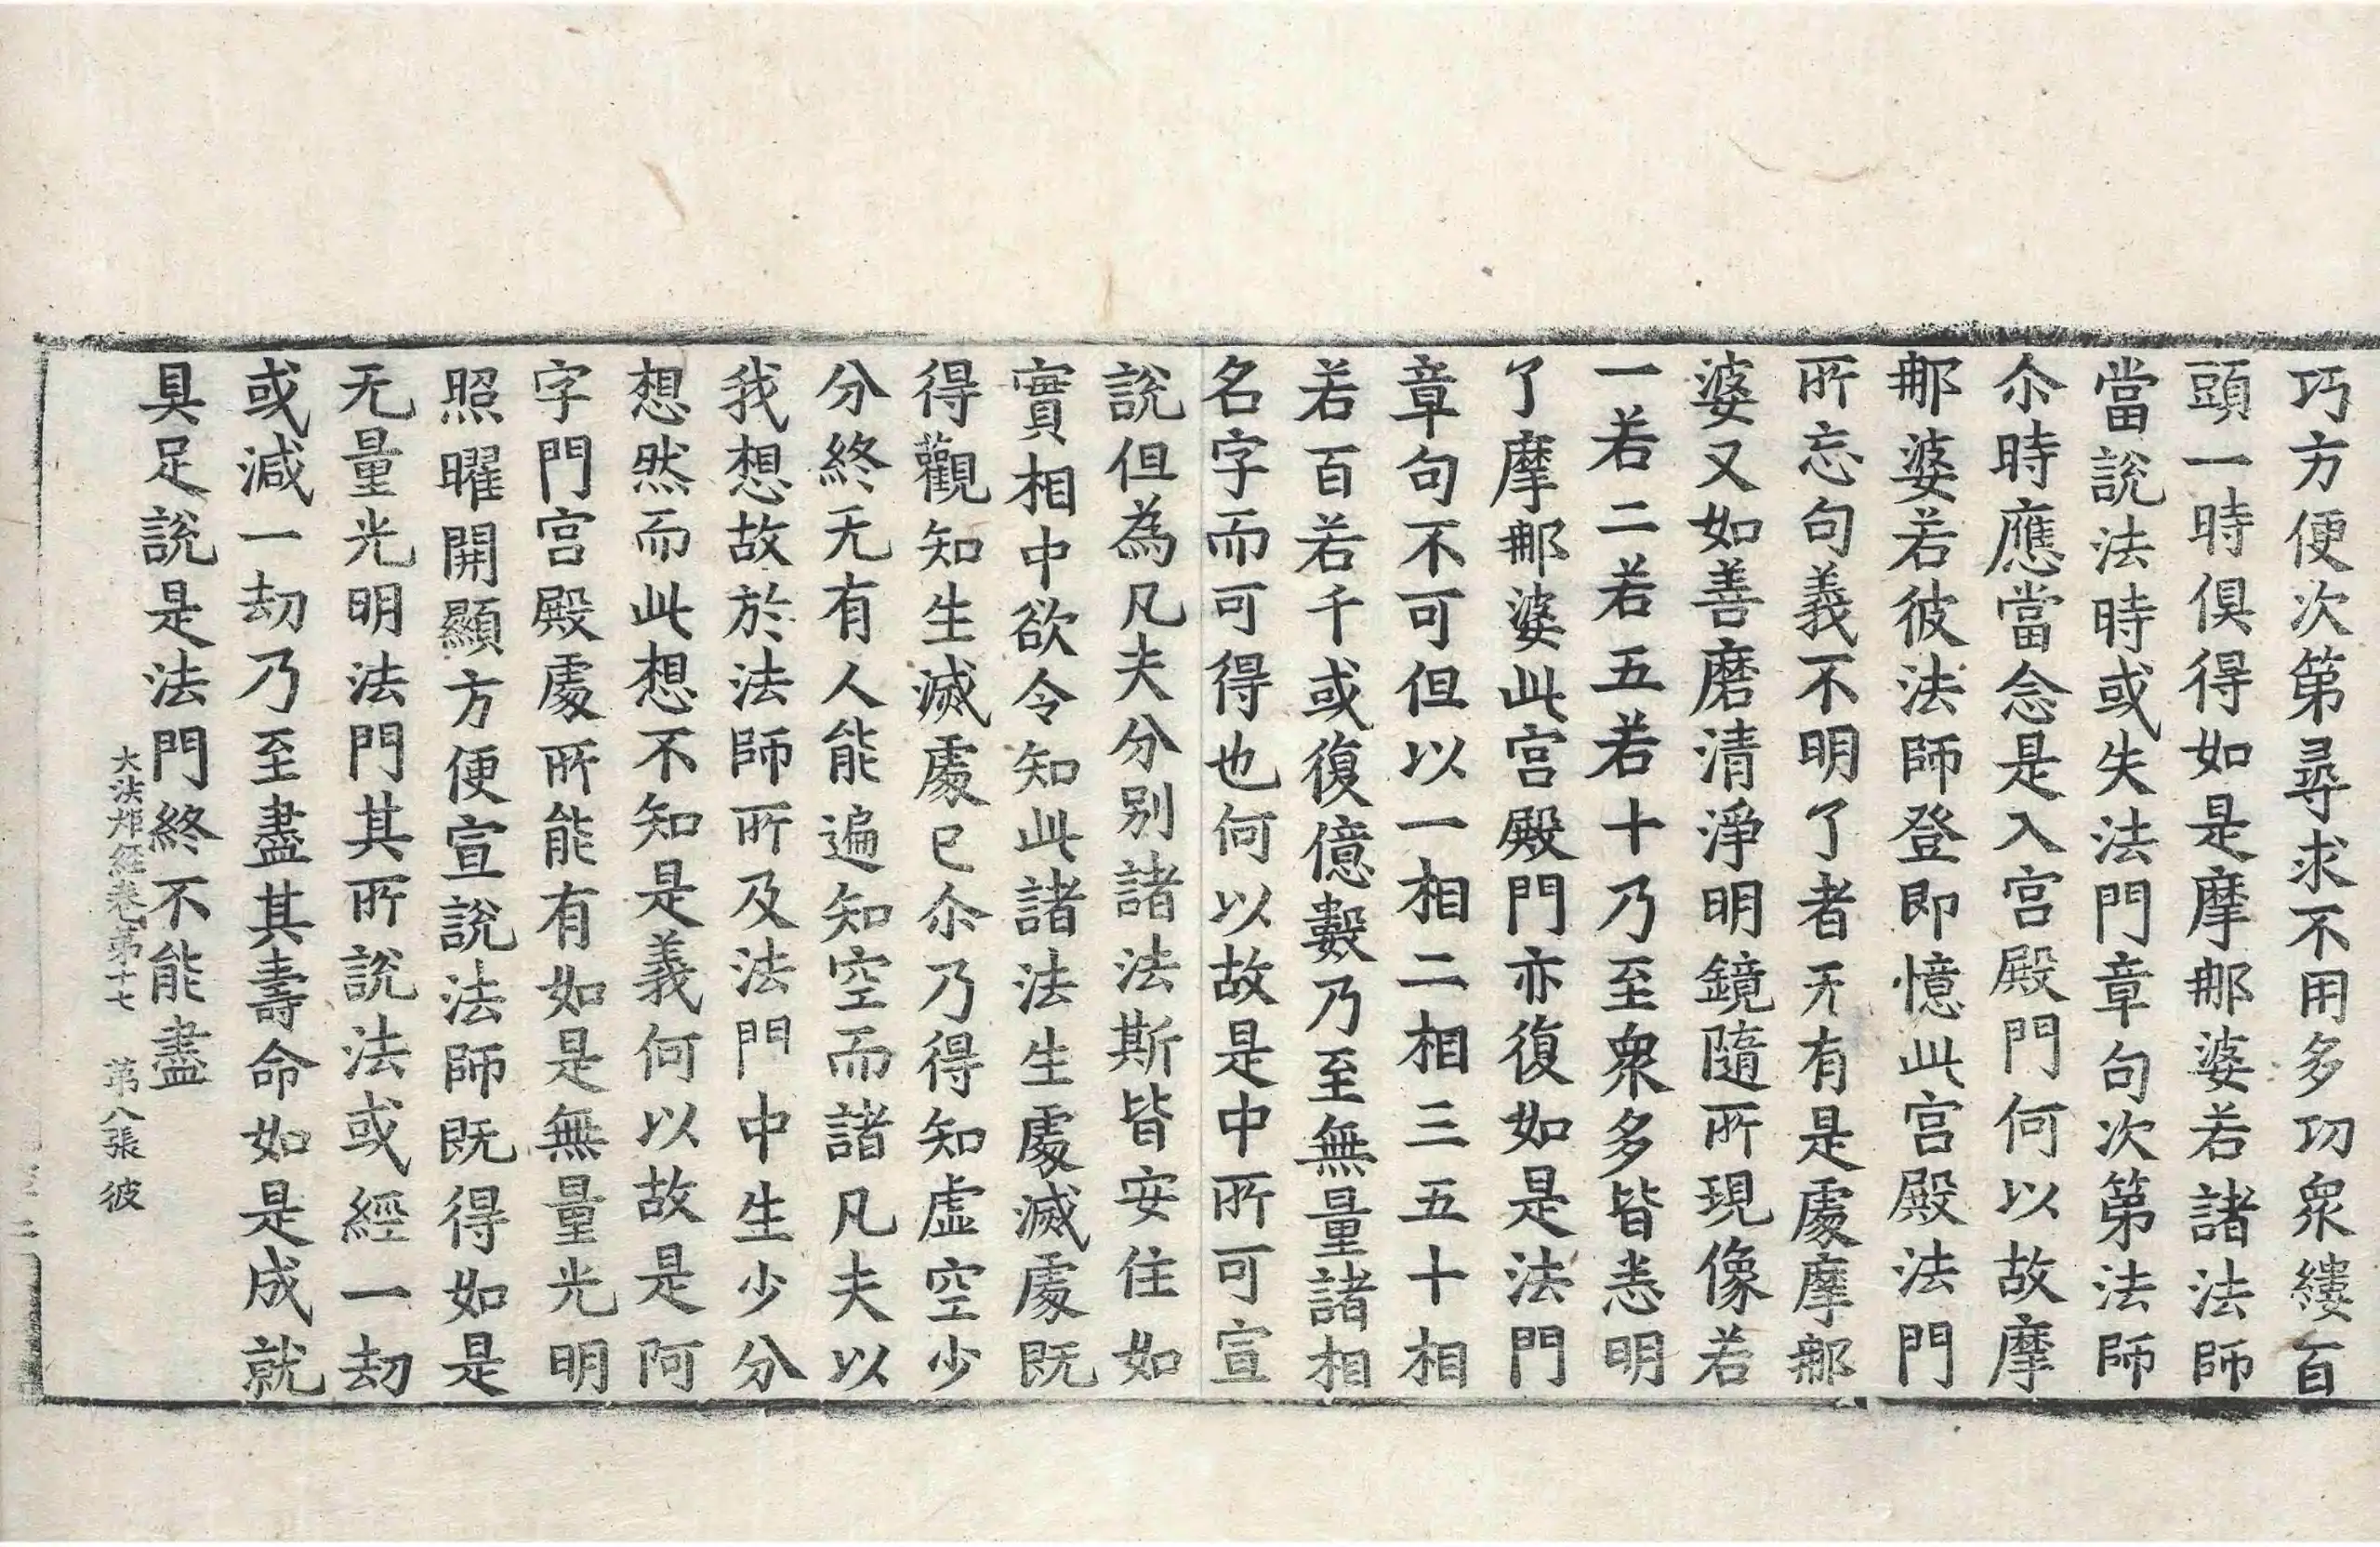 巧方便次第尋求不用多功衆縷百
頭一時俱得如是摩那婆若諸法師
當說法時或失法門章句次第法師
尒時應當念是入宮殿門何以故摩
那婆若彼法師登即憶此宮殿法門
所忘句義不明了者无有是處摩那
婆又如善磨清淨明鏡隨所現像若
一若二若五若十乃至衆多皆悉明
了摩那婆此宮殿門亦復如是法門
章句不可但以一相二相三五十相
若百若千或復億數乃至無量諸相
名字而可得也何以故是中所可宣
說但為凡夫分別諸法斯皆安住如
實相中欲令知此諸法生處滅處既
得觀知生滅處已尒乃得知虛空少
分終无有人能遍知空而諸凡夫以
我想故於法師所及法門中生少分
想然而此想不知是義何以故是阿
字門宮殿處所能有如是無量光明
照曜開顯方便宣說法師既得如是
无量光明法門其所說法或經一劫
或減一劫乃至盡其壽命如是成就
具足說是法門終不能盡
大法炬經卷第十七 第八張 彼